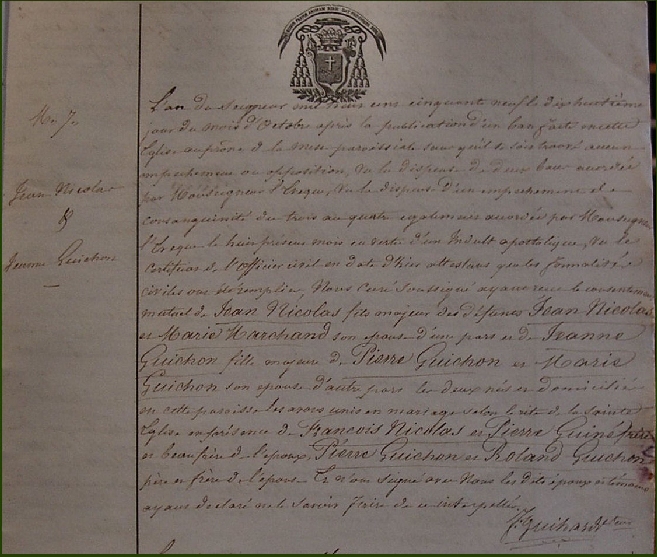 M. 7.
Jean Nicolas
&
Jeanne Guichon
L'an du Seigneur mil huit cent cinquante neuf le dix huitième
jour du mois d'Octobre après la publication d'un ban faite en cette
Eglise au prône de la messe paroissiale sans qu'il se soit trouvé aucun
empêchement ou opposition, Vu la dispense de deux bans accordée
par Monseigneur l'Evêque, Vu la dispense d'un empêchement de
consanguinité du trois au quatre également accordée par Monseigneur
l'Evêque le huit présent mois en vertu d'un Indult apostolique, Vu le
certificat de l'officier civil en date d'hier attestant que les formalités
civiles ont été remplies, Nous Curé soussigné ayant reçu le consentement
mutuel de Jean Nicolas fils majeur des défunts Jean Nicolas
et Marie Marchand son épouse d'une part et de Jeanne
Guichon fille majeure de Pierre Guichon et Marie
Guichon son épouse d'autre part les deux nés et domiciliés
en cette paroisse les avons unis en mariage selon le rite de la Sainte
Eglise en présence de François Nicolas et Pierre Guiné frère
et beau frère de l'époux, Pierre Guichon et Roland Guichon
père et frère de l'épouse. Et n'ont signé avec Nous les dits époux et témoins
ayant déclaré ne le savoir faire de ce interpellés.
Guihard recteur